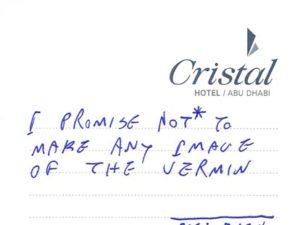 Cristal
HOTEL / ABU DHABI
I PROMISE NOT* TO
MAKE ANY IMAGE
OF THE VERMIN